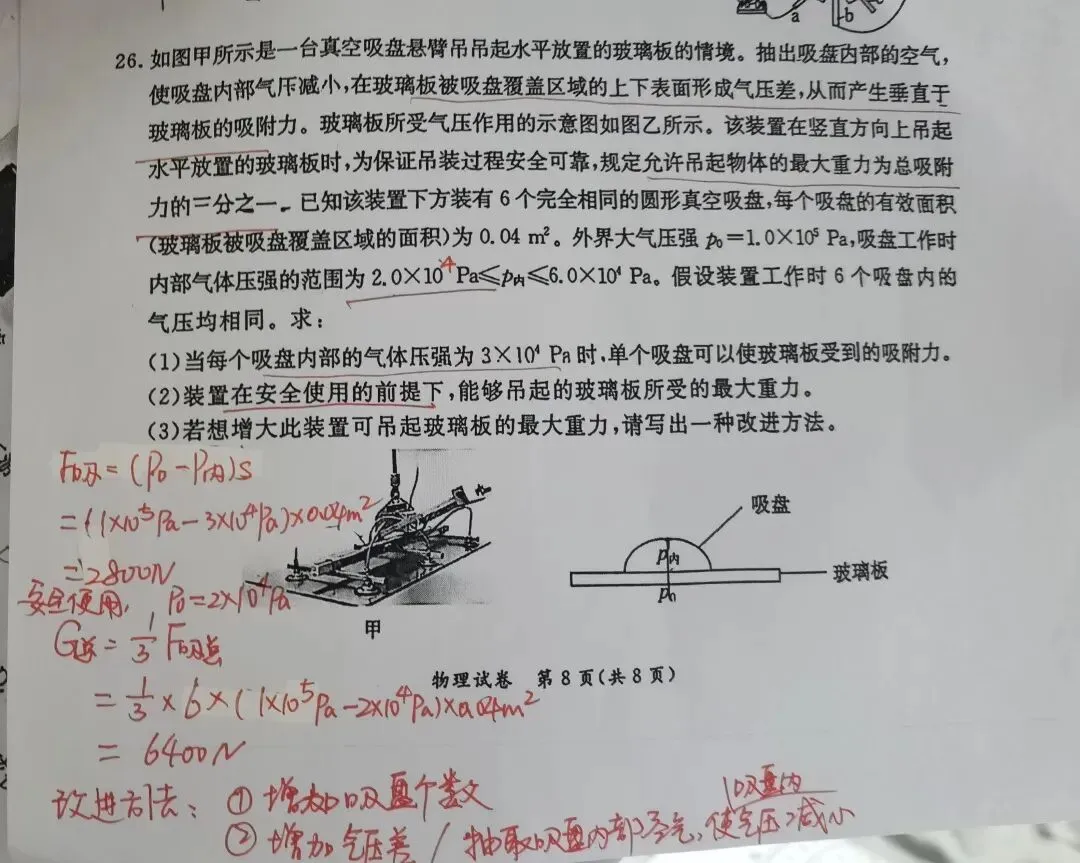 a
b
26. 如图甲所示是一台真空吸盘悬臂吊吊起水平放置的玻璃板的情境。抽出吸盘内部的空气,
使吸盘内部气压减小,在玻璃板被吸盘覆盖区域的上下表面形成气压差,从而产生垂直于
玻璃板的吸附力。玻璃板所受气压作用的示意图如图乙所示。该装置在竖直方向上吊起
水平放置的玻璃板时,为保证吊装过程安全可靠,规定允许吊起物体的最大重力为总吸附
力的三分之一。已知该装置下方装有6个完全相同的圆形真空吸盘,每个吸盘的有效面积
(玻璃板被吸盘覆盖区域的面积)为0.04 m²。外界大气压强 p₀=1.0×10⁵ Pa,吸盘工作时
内部气体压强的范围为2.0×10⁴ Pa≤p内≤6.0×10⁴ Pa。假设装置工作时6个吸盘内的
气压均相同。求:
(1)当每个吸盘内部的气体压强为3×10⁴ Pa时,单个吸盘可以使玻璃板受到的吸附力。
(2)装置在安全使用的前提下,能够吊起的玻璃板所受的最大重力。
(3)若想增大此装置可吊起玻璃板的最大重力,请写出一种改进方法。
F吸=(P₀-P内)S
=(1×10⁵Pa-3×10⁴Pa)×0.04m²
=2800N
安全使用, P₀=2×10⁴Pa
G总=1/3 F吸总
=1/3×6×(1×10⁵Pa-2×10⁴Pa)×0.04m²
=6400N
吸盘
p内
玻璃板
p₀
甲
物理试卷 第8页(共8页)
改进方法: ①增加吸盘个数
吸盘内
②增加气压差/抽取吸盘内部空气,使气压减小